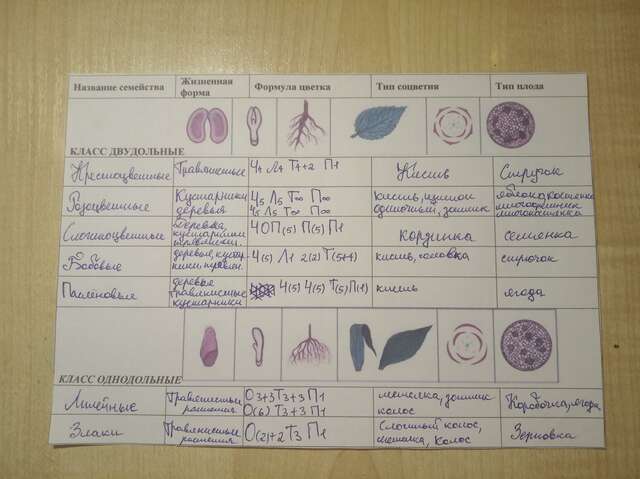 Название семейства Жизненная форма Формула цветка Тип соцветия Тип плода
КЛАСС ДВУДОЛЬНЫЕ
Крестоцветные Травянистые Ч4 Л4 Т4+2 П1 Кисть Стручок
Розоцветные Кустарники деревья Ч5 Л5 Т∞ П∞ Ч5 Л5 Т∞ П∞ кисть, щиток одиночный, зонтик яблоко, костянка многоорешек многокостянка
Сложноцветные Деревья, кустарники травянист. ЧОП(5) П(5) П1 корзинка семянка
Бобовые деревья, куста- рники, травян. Ч(5) Л1 2(2) Т(5+4) кисть, головка стручок
Паслёновые деревья травянистые кустарники Ч(5) Ч(5) Т(5) П(1) кисть ягода
КЛАСС ОДНОДОЛЬНЫЕ
Лилейные Травянистые растения О3+3 Т3+3 П1 О(6) Т3+3 П1 метелка, зонтик колос Коробочка, ягода
Злаки Травянистые растения О(2)+2 Т3 П1 Сложный колос, метелка, колос Зерновка